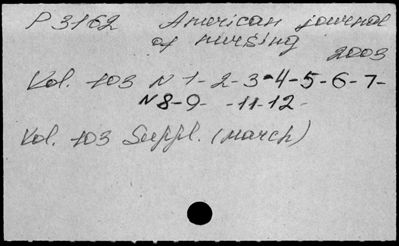 P 3162 American journal
of nursing
2003
Vol. 103 N 1-2-3-4-5-6-7-
N8-9- -11-12-
Vol. 103 Suppl. (March)